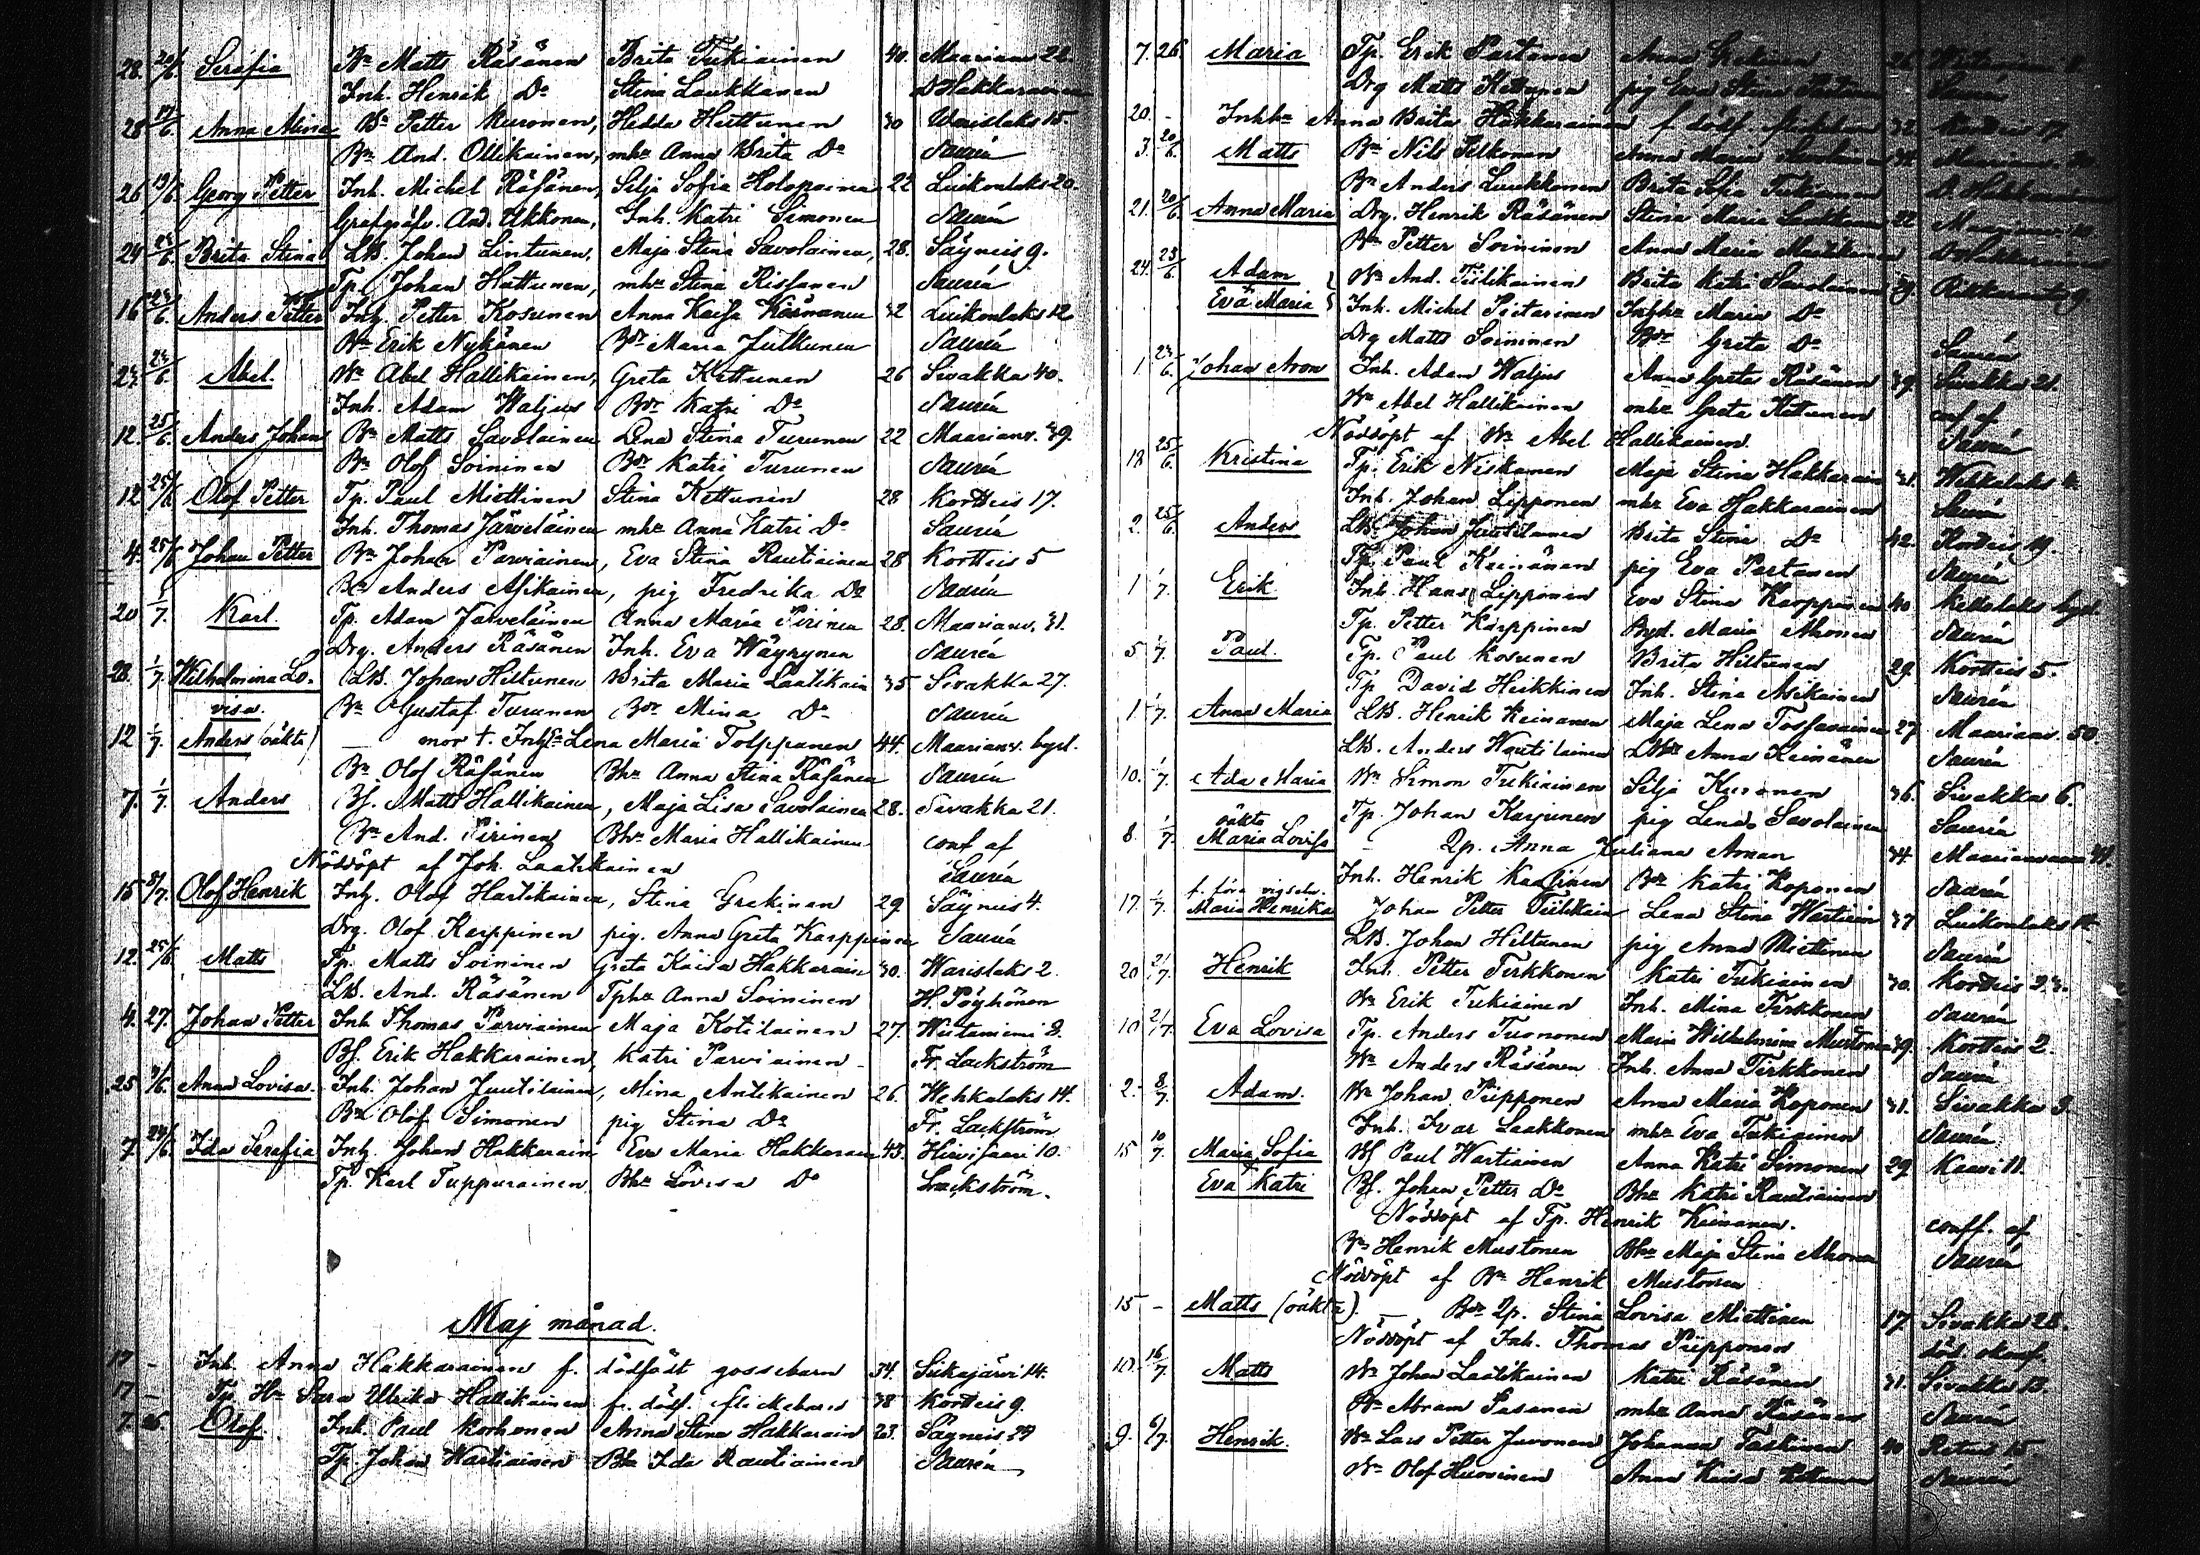 28. 20/6. Serafia Bn Matts Räsänen Brita Tukiainen 40. Maarianv 22.
Inh. Henrik Do Stina Laukkanen D Hakkarainen
28 17/6. Anna Mina Bn Petter Muronen, Hedda Hiltunen 30 Warislaks 15.
Bn And. Ollikainen, mhr Anna Brita Do Saurén
26 19/6 Georg Petter Inh. Michel Räsänen, Silja Sofia Holopainen 22 Luikonlaks 20.
And. Ukkonen, Inh. Katri Simonen Saurén
24 Brita Stina LB. Johan Lintunen, Maja Stina Savolainen, 28. Säyneis 9.
Tp. Johan Hattunen, mhr Stina Rissanen Saurén
16 Anders Petter Inh. Petter Kosunen Anna Kaisa 32 Luikonlaks 12
Bn Erik Nykänen Bdr Maria Julkunen Saurén
Abel. Bn Abel Hallikainen, Greta Kettunen 26 Sivakka 40.
Inh. Adam Waljus Bdr Katri Do Saurén
12. 25/6. Anders Johan Bn Matts Savolainen Lena Stina Turunen 22 Maarianv. 39.
Bn Olof Soininen Bdr Katri Turunen Saurén
12 25/6 Olof Petter Tp. Paul Miettinen Stina Kettunen 28 Kortteis 17.
Inh. Thomas Järveläinen mhr Anna Katri Do Saurén
4. 25/6 Johan Petter Bn Johan Parviainen, Eva Stina Rautiainen 28 Kortteis 5
Bn Anders Asikainen, pig Fredrika Do Saurén
20 1/7. Karl. Tp. Adam Järveläinen Anna Maria Pirinen 28. Maarianv. 31.
Drg. Anders Räsänen Inh. Eva Wäyrynen Saurén
28. 1/7. Wilhelmina Lo- LB. Johan Hiltunen Brita Maria Laatikain 35 Sivakka 27.
visa. Bn Gustaf Turunen Bdr Mina Do Saurén
12 1/7. Anders (oäkta) — mor t. Lena Maria Tolppanen 44. Maarianv. byst.
Bn Olof Räsänen Bhr Anna Stina Räsänen Saurén
7. 1/7. Anders Bf. Matts Hallikainen, Maja Lisa Savolainen 28. Sivakka 21.
Bn And. Pirinen Bhr Maria Hallikainen conf af
Nöddöpt af Joh. Laatikainen Saurén
15 8/7. Olof Henrik Inh. Olof Hartikainen, Stina Grekinen 29 Säyneis 4.
Drg. Olof Karppinen pig. Anna Greta Karppinen Saurén
12. 25/6 Matts Tp. Matts Soininen Greta Kaisa Hakkarain 30. Warislaks 2.
LB. And. Räsänen Tphr Anna Soininen H. Pöyhönen
4. 27. Johan Petter Inh Thomas Parviainen Maja Kotilainen 27. Wiitaniemi 3.
Bf. Erik Hakkarainen, Katri Parviainen Fr. Lackström
25 Anna Lovisa. Inh. Johan Juutilainen, Mina Antikainen 26. Wehkalaks 14.
Bn Olof Simonen pig Stina Do Fr. Lackström
7. 24/6. Ida Serafia Inh. Johan Hakkarain Eva Maria Hakkarain 43. Hirvisaari 10.
Tp. Karl Tuppurainen. Bhr Lovisa Do Lackström.
Maj månad.
17 - Inh. Anna Hakkarainen f. dödfödt gossebarn 34. Siikajärvi 14.
17 - Tp. Hu Sara Ulrika Hallikainen fr. dödf. flickebarn 38 Kortteis 9.
7. 26. Olof. Inh. Paul Korhonen Anna Stina Hakkarain 23. Säyneis 34
Tp. Johan Wartiainen Bhr Ida Rautiainen Saurén
7. 26. Maria Tp. Erik Partanen Anna
Drg Matts Kettunen pig Stina Saurén
20. - Anna Brita Hakkarainen f. dödf. 32. Kortteis 17.
3. 20/6. Matts Bn Nils Pelkonen Anna Maria
Bn Anders Luukkonen Brita Sofia Tukiainen D. Hakkarainen
21. 20/6. Anna Maria Drg. Henrik Räsänen Stina Maria 22
Bn Petter Soininen Anna Maria D Hakkarainen
24. 23/6 Adam Bn And. Tiilikainen Brita Katri Savolainen 39.
Eva Maria Inh. Michel Pietarinen Maria Do
Drg Matts Soininen Bdr Greta Do Saurén
1 24/6. Johan Aron Inh. Adam Waljus Anna Greta Räsänen 39. Sivakka 21.
Bn Abel Hallikainen mhr Greta Kettunen conf af
Nöddöpt af Bn Abel Hallikainen. Saurén
18 25/6. Kristina Tp. Erik Niskanen Maja Stina Hakkarain 31. Wehkalaks
Inh. Johan Lipponen mhr Eva Hakkarainen Saurén
2. 25/6 Anders LB. Johan Juutilainen Brita Stina Do 42. Kortteis 19.
Tp. Paul Keinänen pig Eva Partanen Saurén
1 1/7. Erik. Inh. Hans Lipponen Eva Stina Karppinen 40.
Tp. Petter Karppinen Maria Ahonen Saurén
5 1/7. Paul. Tp. Paul Kosunen Brita Hiltunen 29. Kortteis 5.
Tp David Heikkinen Inh. Stina Asikainen Saurén
1 1/7. Anna Maria LB. Henrik Keinänen Maja Lena Tossavainen 27 Maarianv. 50
LB. Anders Wentilainen LBhr Anna Keinänen Saurén
10. 1/7. Ada Maria Bn Simon Tukiainen Silja Kuronen 36. Sivakka 6.
Tp. Johan Karjunen pig Lena Savolainen Saurén
8. 1/7. oäkta Maria Lovisa - Qp. Anna Juliana Aman 34. Maarianvaara
Inh. Henrik Kaatinen Bdr Katri Koponen Saurén
17. 1/7. f. före vigseln. Maria Henrika Johan Petter Tiilikain Lena Stina Wartiain 37 Luikonlaks
LB. Johan Hiltunen pig Anna Miettinen Saurén
20 21/7. Henrik Inh. Petter Tirkkonen Katri Tukiainen 30. Kortteis
Bn Erik Tukiainen Inh. Mina Tirkkonen Saurén
10 21/7. Eva Lovisa Tp. Anders Tuononen Maria Wilhelmina Mustonen 39. Kortteis 2.
Bn Anders Räsänen Inh. Anna Tirkkonen Saurén
2. 8/7. Adam. Bn Johan Piipponen Anna Maria Koponen 31. Sivakka 3.
Inh. Ivar Laakkonen mhr Eva Tukiainen Saurén
15 10/7. Maria Sofia Bf Paul Wartiainen Anna Katri Simonen 29. Kaavi 11.
Eva Katri Bf. Johan Petter Do Bhr Katri Rautiainen
Nöddöpt af Tp. Henrik Keinänen. conff. af
Bn Henrik Mustonen Bhr Maja Stina Ahonen Saurén
Nöddöpt af Bn Henrik Mustonen
15 - Matts (oäkta). — Bdr Qp. Stina Lovisa Miettinen 17. Sivakka 28.
Nöddöpt af Inh. Thomas Piipponen
16/7. Matts Bn Johan Laatikainen Katri Räsänen 31. Sivakka 13.
Bn Abram Pasanen mhr Anna Räsänen Saurén
9. 6/7. Henrik. Bn Lars Petter Juvonen Johanna Taskinen 40 Retun 15
Bn Olof Huovinen Anna Kaisa Saurén